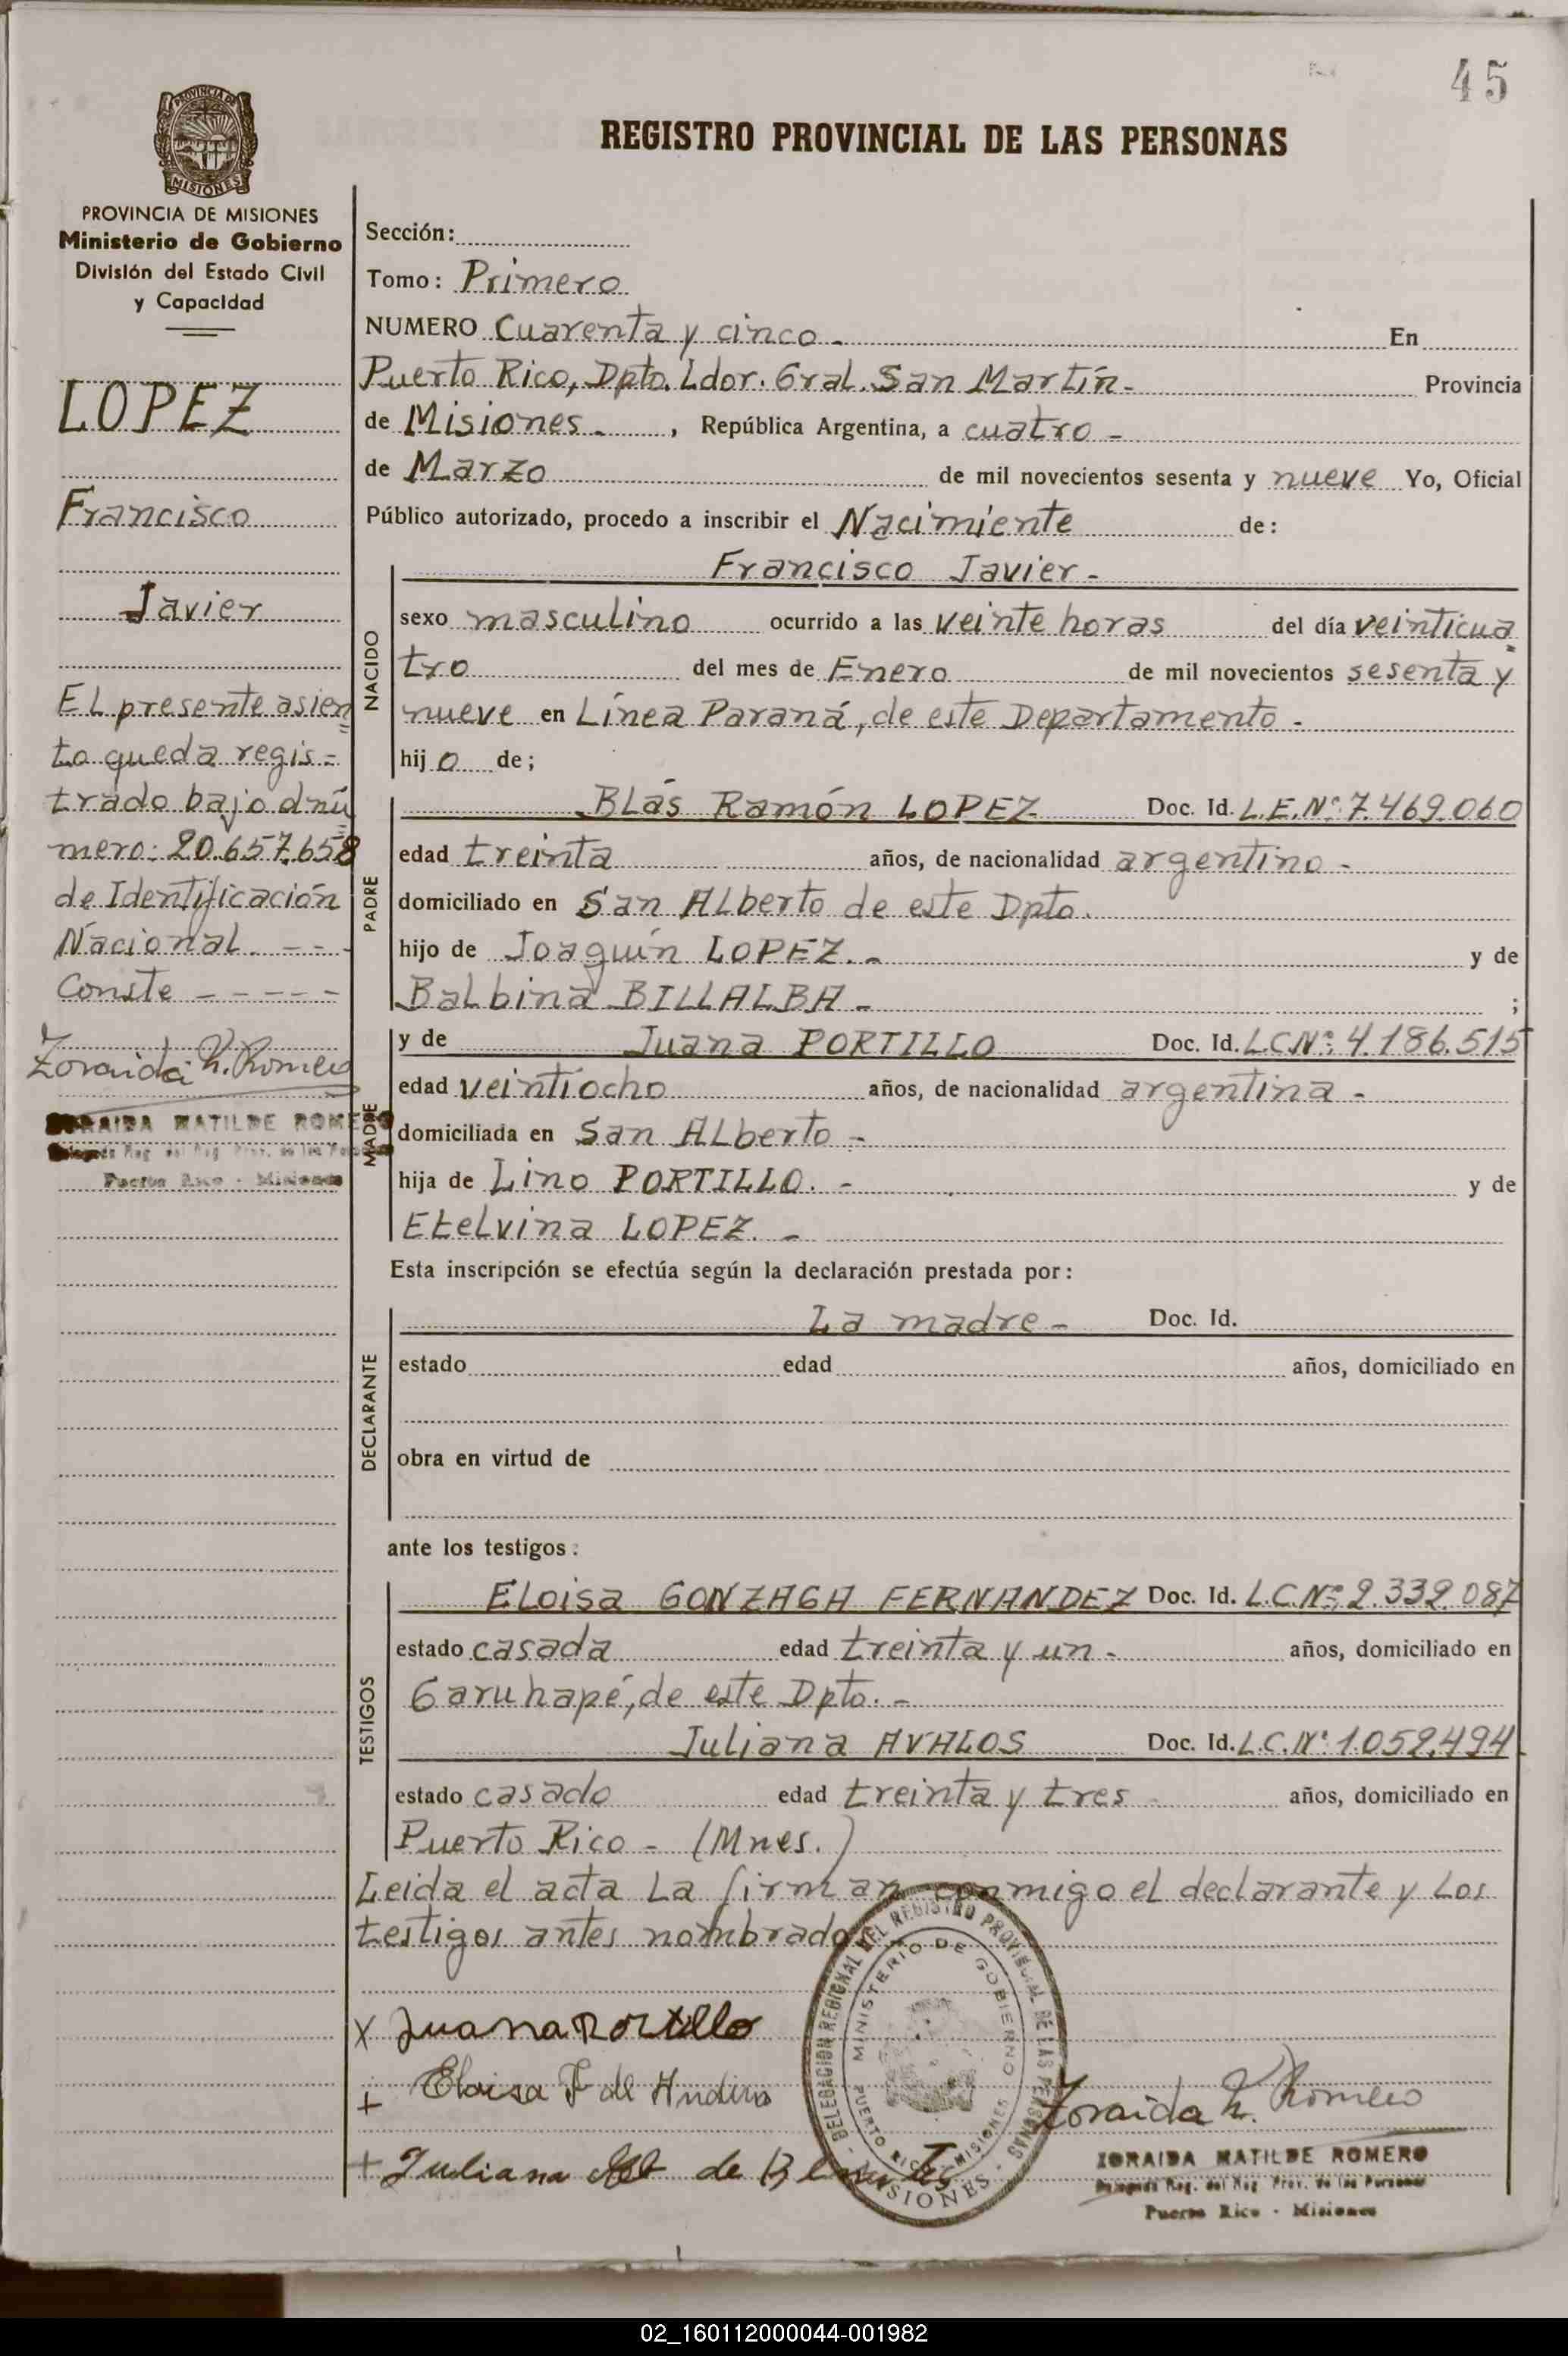 45
REGISTRO PROVINCIAL DE LAS PERSONAS
PROVINCIA DE
MISIONES
PROVINCIA DE MISIONES
Ministerio de Gobierno
División del Estado Civil
y Capacidad
LOPEZ
Francisco
Javier
El presente asien
to queda regis=
trado bajo el nú
mero: 20.657.658
de Identificación
Nacional. - - -
Conste - - - - -
Zoraida M. Romero
ZORAIDA MATILDE ROMERO
Delegada Reg. del Reg. Prov. de las Personas
Puerto Rico - Misiones
Sección:
Tomo: Primero
NUMERO Cuarenta y cinco - En
Puerto Rico, Dpto. Ldor. Gral. San Martín - Provincia
de Misiones - , República Argentina, a cuatro -
de Marzo de mil novecientos sesenta y nueve Yo, Oficial
Público autorizado, procedo a inscribir el Nacimiente de:
NACIDO
Francisco Javier -
sexo masculino ocurrido a las veinte horas del día veinticua
tro del mes de Enero de mil novecientos sesenta y
nueve en Línea Paraná, de este Departamento -
hij o de;
PADRE
Blás Ramón LOPEZ Doc. Id. L.E. Nº 7.469.060
edad treinta años, de nacionalidad argentino -
domiciliado en San Alberto de este Dpto.
hijo de Joaquín LOPEZ. - y de
Balbina BILLALBA - ;
MADRE
y de Juana PORTILLO Doc. Id. L.C. Nº: 4.186.515
edad veintiocho años, de nacionalidad argentina -
domiciliada en San Alberto -
hija de Lino PORTILLO. - y de
Etelvina LOPEZ. -
Esta inscripción se efectúa según la declaración prestada por:
DECLARANTE
La madre - Doc. Id.
estado edad años, domiciliado en
obra en virtud de
ante los testigos:
TESTIGOS
Eloisa GONZAGA FERNANDEZ Doc. Id. L.C. Nº: 2.332.087
estado casada edad treinta y un - años, domiciliado en
Garuhapé, de este Dpto. -
Juliana AVALOS Doc. Id. L.C. Nº 1.052.494
estado casado edad treinta y tres - años, domiciliado en
Puerto Rico - (Mnes.)
Leida el acta la firman conmigo el declarante y los
testigos antes nombrados
x Juana Portillo
+ Eloisa F de
+ Juliana de
DELEGACION REGIONAL DEL REGISTRO PROVINCIAL DE LAS PERSONAS
MINISTERIO DE GOBIERNO
PUERTO RICO - MISIONES
MISIONES
Zoraida M. Romero
ZORAIDA MATILDE ROMERO
Delegada Reg. del Reg. Prov. de las Personas
Puerto Rico - Misiones
02_160112000044-001982